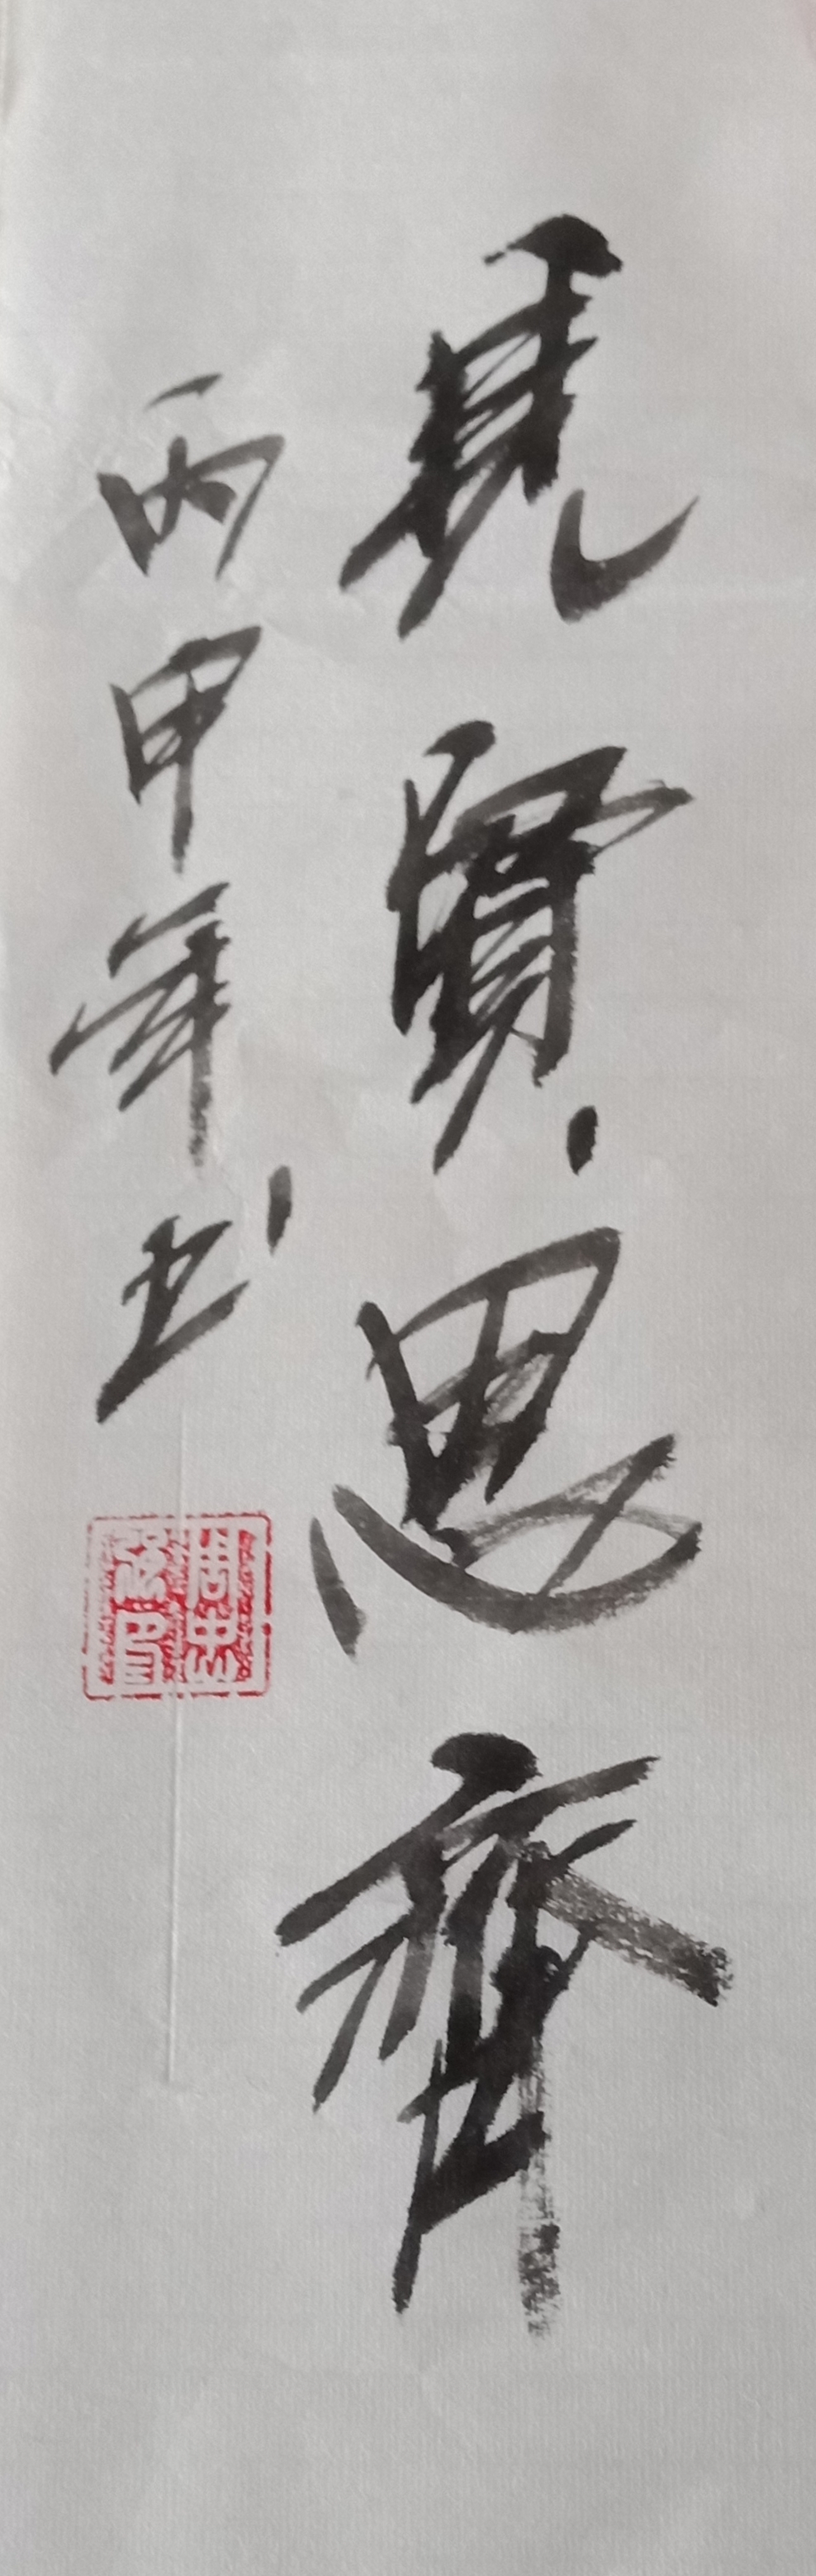 見賢思齊
丙申年书